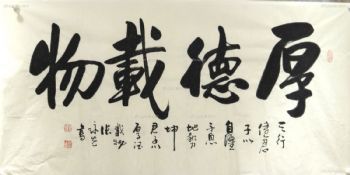 厚德載物
天行
健君
子以
自強
不息
地勢
坤
君子
厚德
載物
書